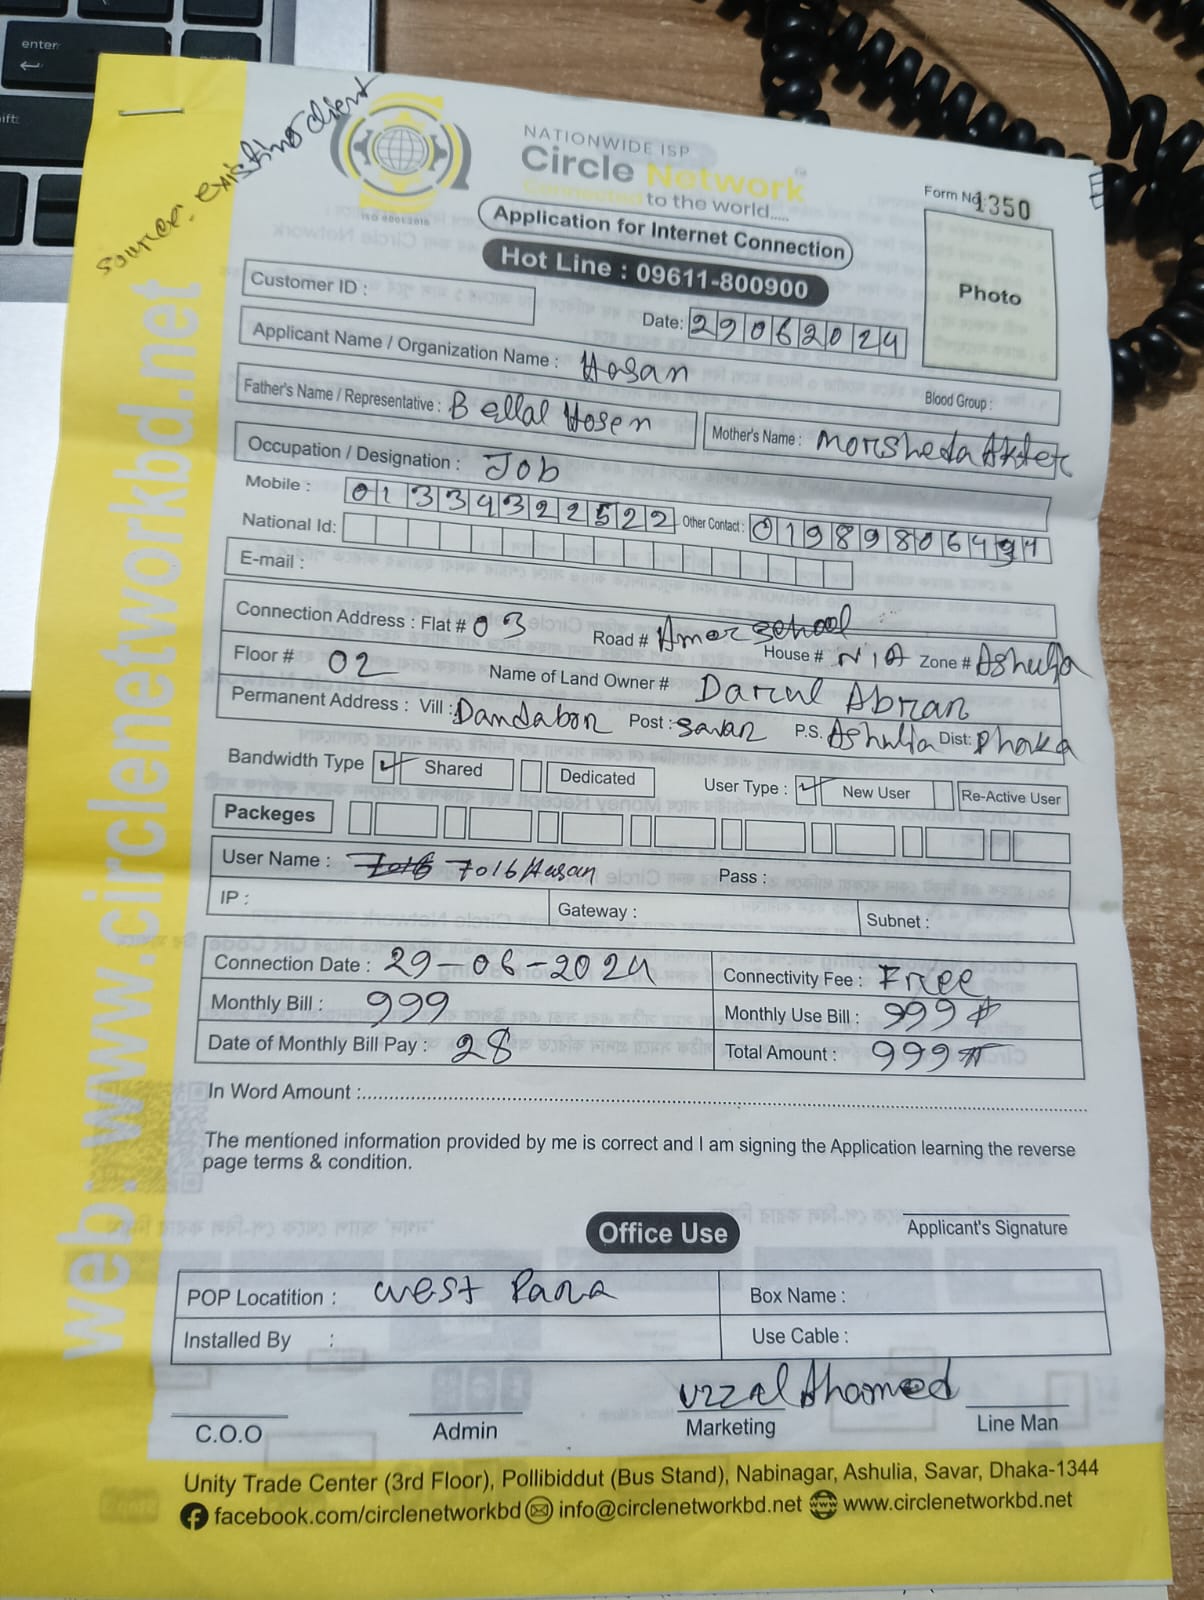 enter
source: existing client
NATIONWIDE ISP
Circle Network
Connected to the world.....
ISO 9001:2015
Application for Internet Connection
Hot Line : 09611-800900
Form No: 1350
Photo
Customer ID :
Date: 29062024
Applicant Name / Organization Name : Hasan
Blood Group :
Father's Name / Representative : Bellal Hosen
Mother's Name : Morsheda Akter
Occupation / Designation : Job
Mobile : 01334322522 Other Contact : 01989806494
National Id:
E-mail :
Connection Address : Flat # 03 Road # Amor school House # N/A Zone # Ashulia
Floor # 02 Name of Land Owner # Darul Abran
Permanent Address : Vill : Dandabor Post : Savar P.S. Ashulia Dist: Dhaka
Bandwidth Type ✓ Shared Dedicated User Type : ✓ New User Re-Active User
Packeges
User Name : 7016 7016Hasan Pass :
IP : Gateway : Subnet :
Connection Date : 29-06-2024 Connectivity Fee : Free
Monthly Bill : 999 Monthly Use Bill : 999
Date of Monthly Bill Pay : 28 Total Amount : 999
In Word Amount :
The mentioned information provided by me is correct and I am signing the Application learning the reverse
page terms & condition.
Applicant's Signature
Office Use
POP Locatition : west Para Box Name :
Installed By : Use Cable :
Uzzal Ahamed
C.O.O Admin Marketing Line Man
Unity Trade Center (3rd Floor), Pollibiddut (Bus Stand), Nabinagar, Ashulia, Savar, Dhaka-1344
facebook.com/circlenetworkbd info@circlenetworkbd.net www.circlenetworkbd.net
web: www.circlenetworkbd.net